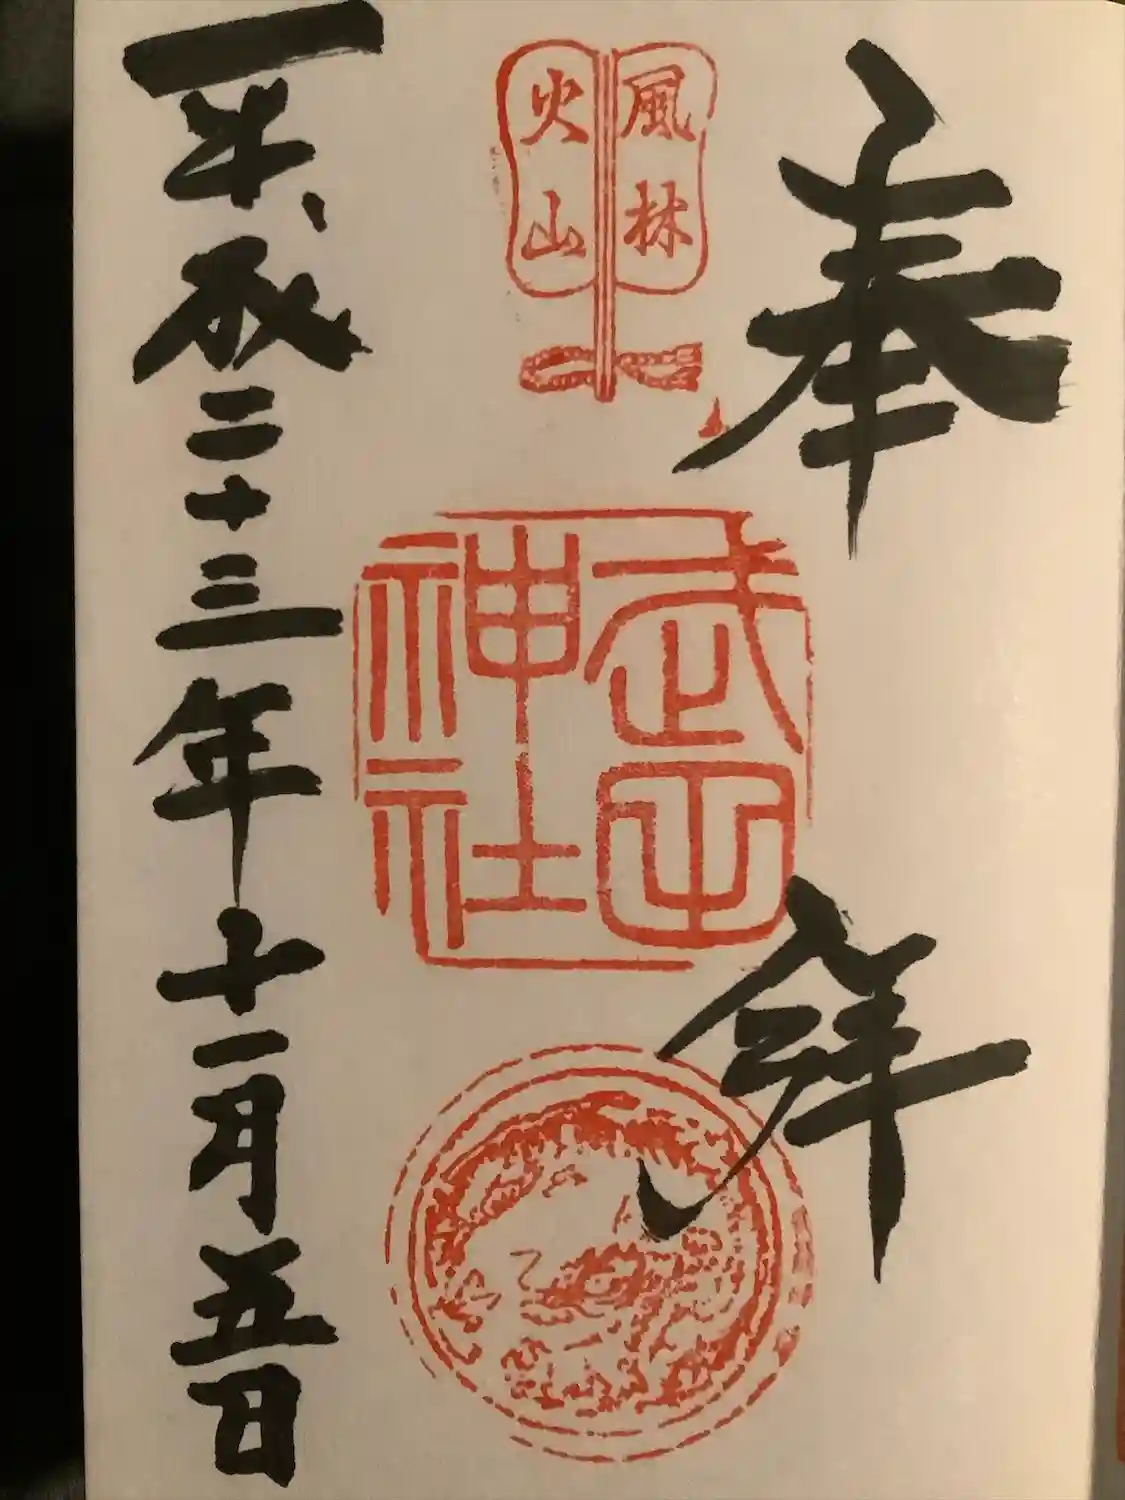 奉拜
風林
火山
武田
神社
平成二十三年十一月五日